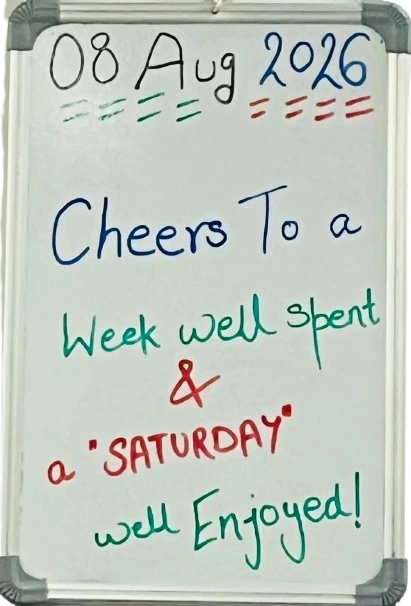 08 Aug 2026
Cheers To a
Week well spent
&
a "SATURDAY"
well Enjoyed!